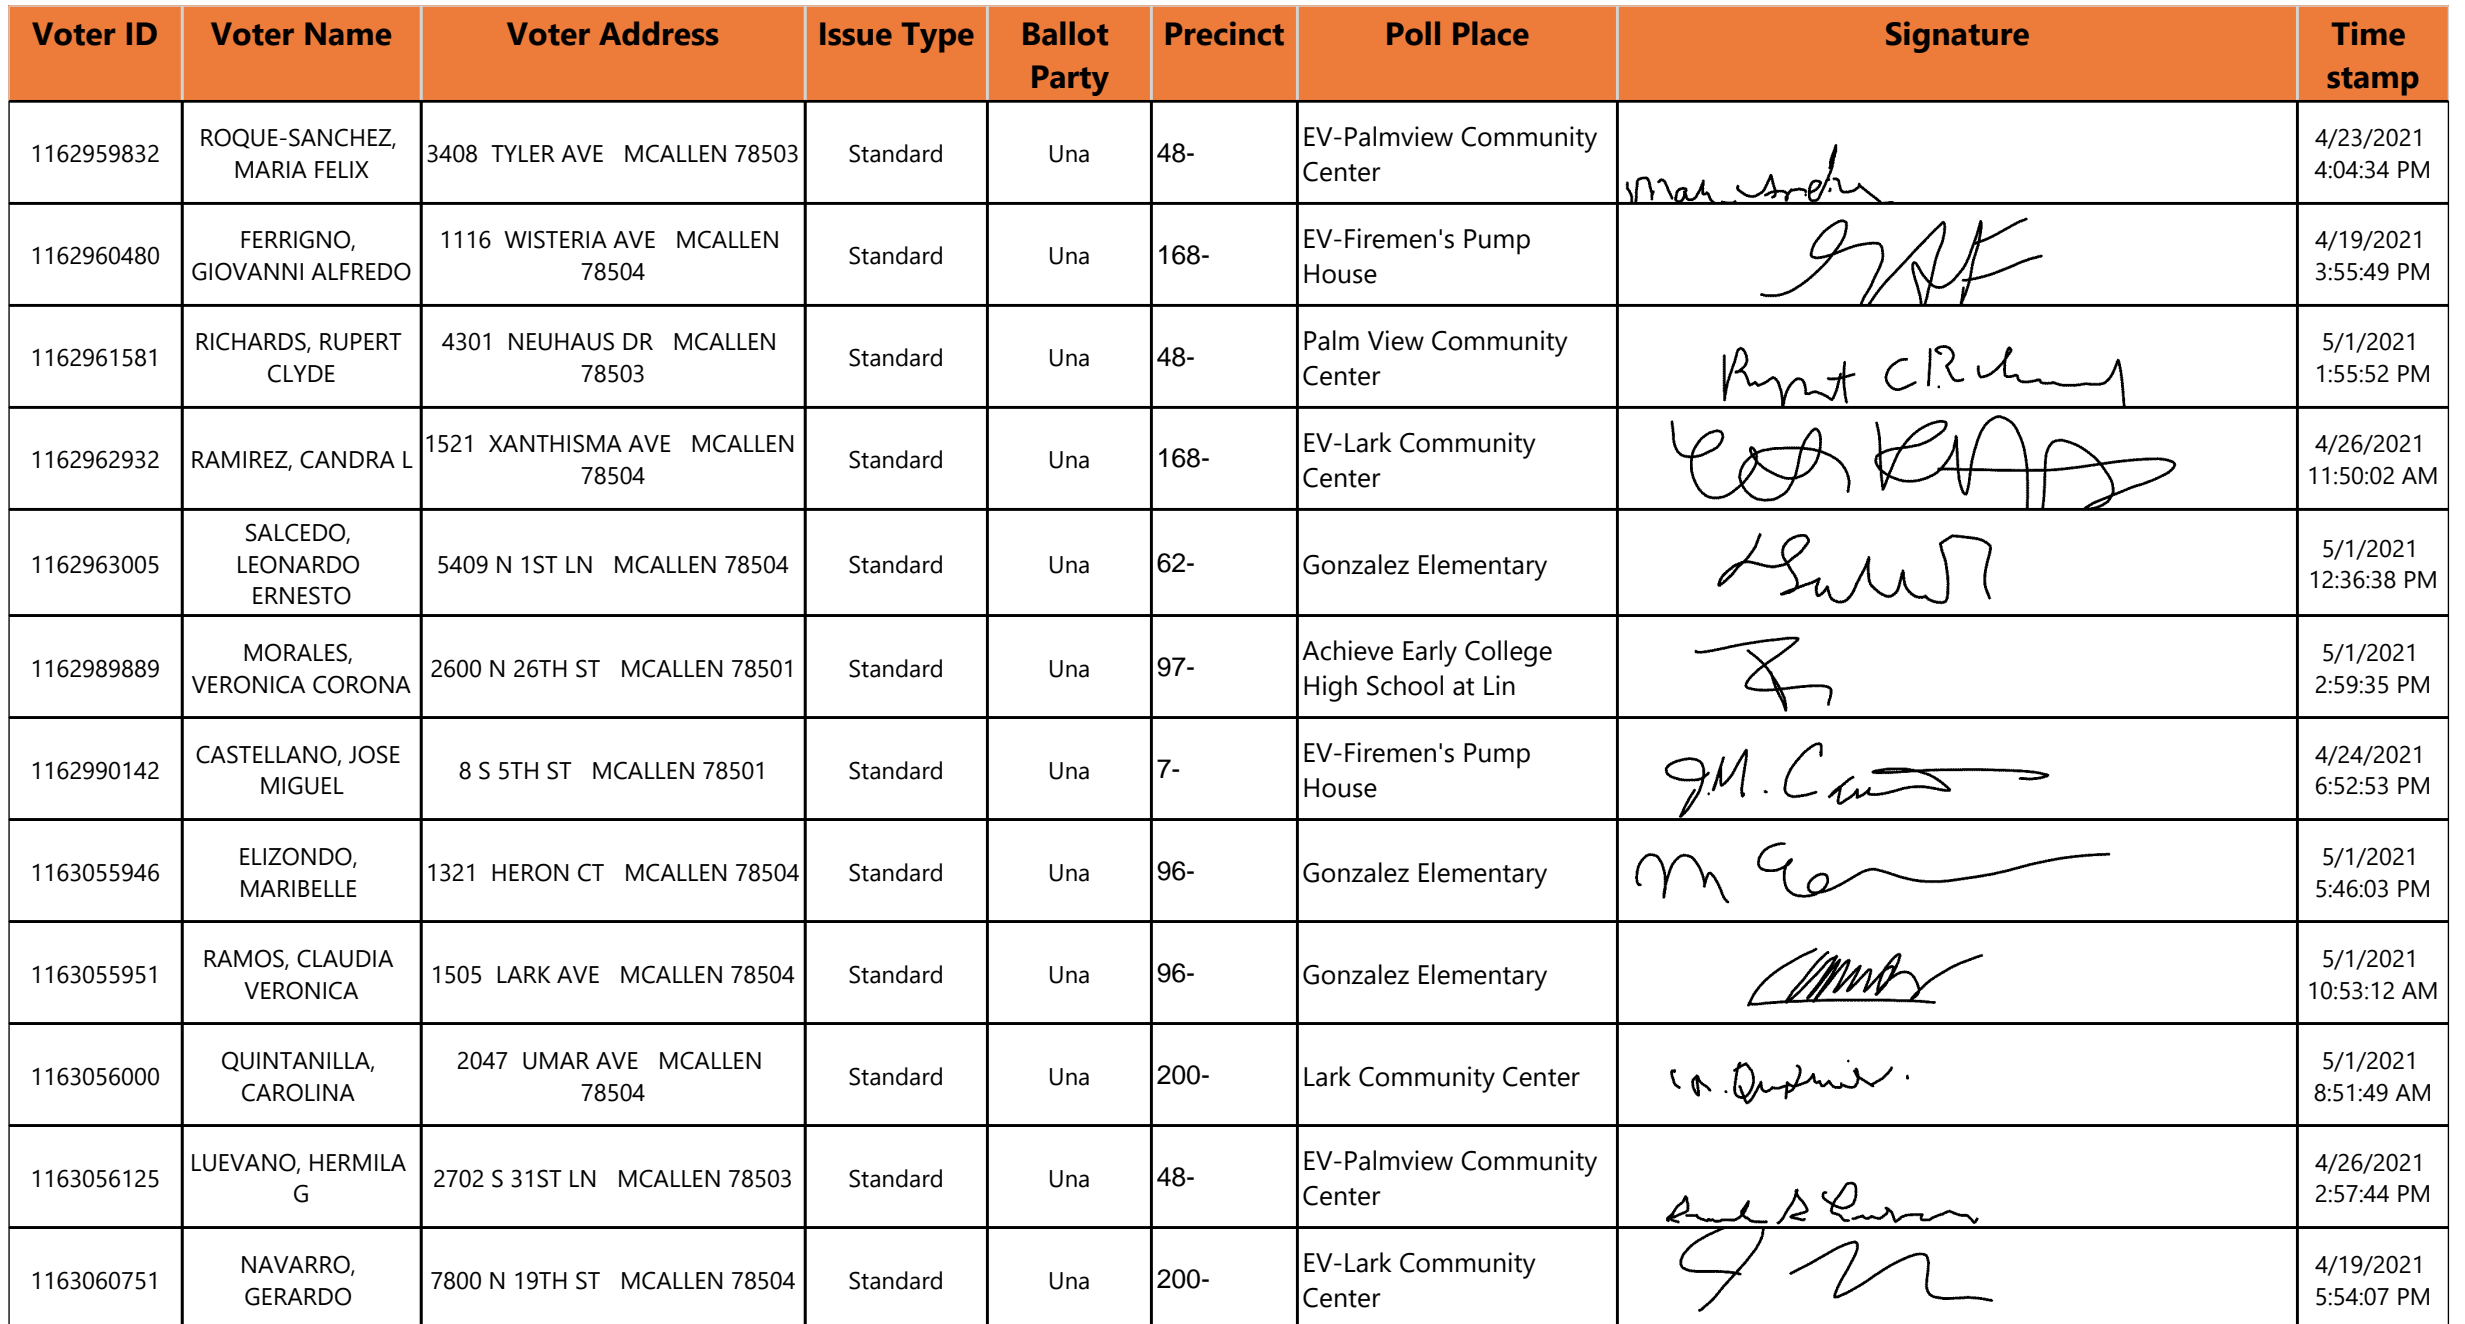 Voter ID Voter Name Voter Address Issue Type Ballot Party Precinct Poll Place Signature Time stamp
1162959832 ROQUE-SANCHEZ, MARIA FELIX 3408 TYLER AVE MCALLEN 78503 Standard Una 48- EV-Palmview Community Center 4/23/2021 4:04:34 PM
1162960480 FERRIGNO, GIOVANNI ALFREDO 1116 WISTERIA AVE MCALLEN 78504 Standard Una 168- EV-Firemen's Pump House 4/19/2021 3:55:49 PM
1162961581 RICHARDS, RUPERT CLYDE 4301 NEUHAUS DR MCALLEN 78503 Standard Una 48- Palm View Community Center 5/1/2021 1:55:52 PM
1162962932 RAMIREZ, CANDRA L 1521 XANTHISMA AVE MCALLEN 78504 Standard Una 168- EV-Lark Community Center 4/26/2021 11:50:02 AM
1162963005 SALCEDO, LEONARDO ERNESTO 5409 N 1ST LN MCALLEN 78504 Standard Una 62- Gonzalez Elementary 5/1/2021 12:36:38 PM
1162989889 MORALES, VERONICA CORONA 2600 N 26TH ST MCALLEN 78501 Standard Una 97- Achieve Early College High School at Lin 5/1/2021 2:59:35 PM
1162990142 CASTELLANO, JOSE MIGUEL 8 S 5TH ST MCALLEN 78501 Standard Una 7- EV-Firemen's Pump House J.M. 4/24/2021 6:52:53 PM
1163055946 ELIZONDO, MARIBELLE 1321 HERON CT MCALLEN 78504 Standard Una 96- Gonzalez Elementary 5/1/2021 5:46:03 PM
1163055951 RAMOS, CLAUDIA VERONICA 1505 LARK AVE MCALLEN 78504 Standard Una 96- Gonzalez Elementary 5/1/2021 10:53:12 AM
1163056000 QUINTANILLA, CAROLINA 2047 UMAR AVE MCALLEN 78504 Standard Una 200- Lark Community Center 5/1/2021 8:51:49 AM
1163056125 LUEVANO, HERMILA G 2702 S 31ST LN MCALLEN 78503 Standard Una 48- EV-Palmview Community Center 4/26/2021 2:57:44 PM
1163060751 NAVARRO, GERARDO 7800 N 19TH ST MCALLEN 78504 Standard Una 200- EV-Lark Community Center 4/19/2021 5:54:07 PM